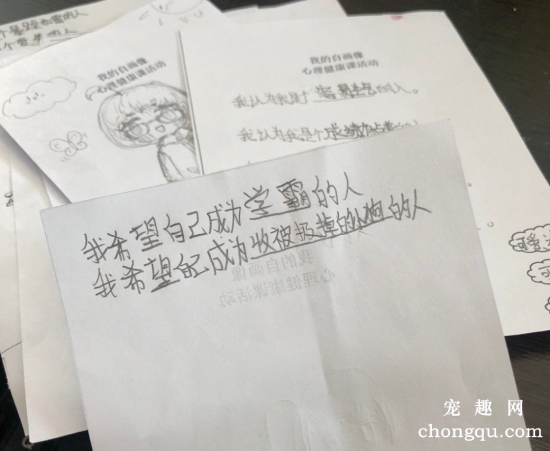 的人
我的自画像
心理健康课活动
我的自画像
心理健康课活动
我认为我是个容易生气的人。
我认为我是个成绩
我希望自己成为学霸的人
我希望自己成为收被扔掉的小狗的人
我的自画像
心理健康课活动
宠趣网
chongqu.com